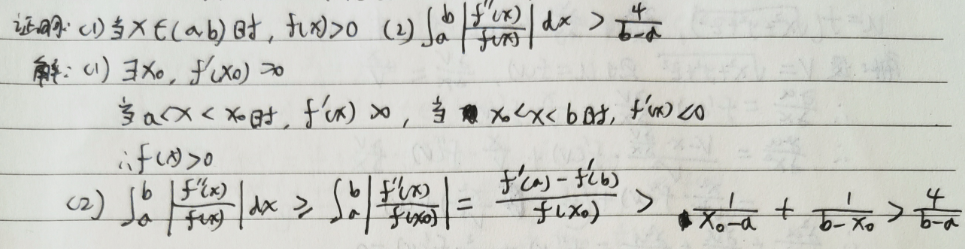 证明: (1) 当x∈(a b)时, f(x)>0 (2) ∫_a^b |f''(x)/f(x)| dx > 4/(b-a)
解: (1) ∃x₀, f'(x₀) >0
当a<x<x₀时, f'(x) >0, 当 x₀<x<b时, f'(x)<0
∴f(x)>0
(2) ∫_a^b |f''(x)/f(x)| dx ≥ ∫_a^b |f''(x)/f(x₀)| = (f'(a)-f'(b))/f(x₀) > 1/(x₀-a) + 1/(b-x₀) > 4/(b-a)